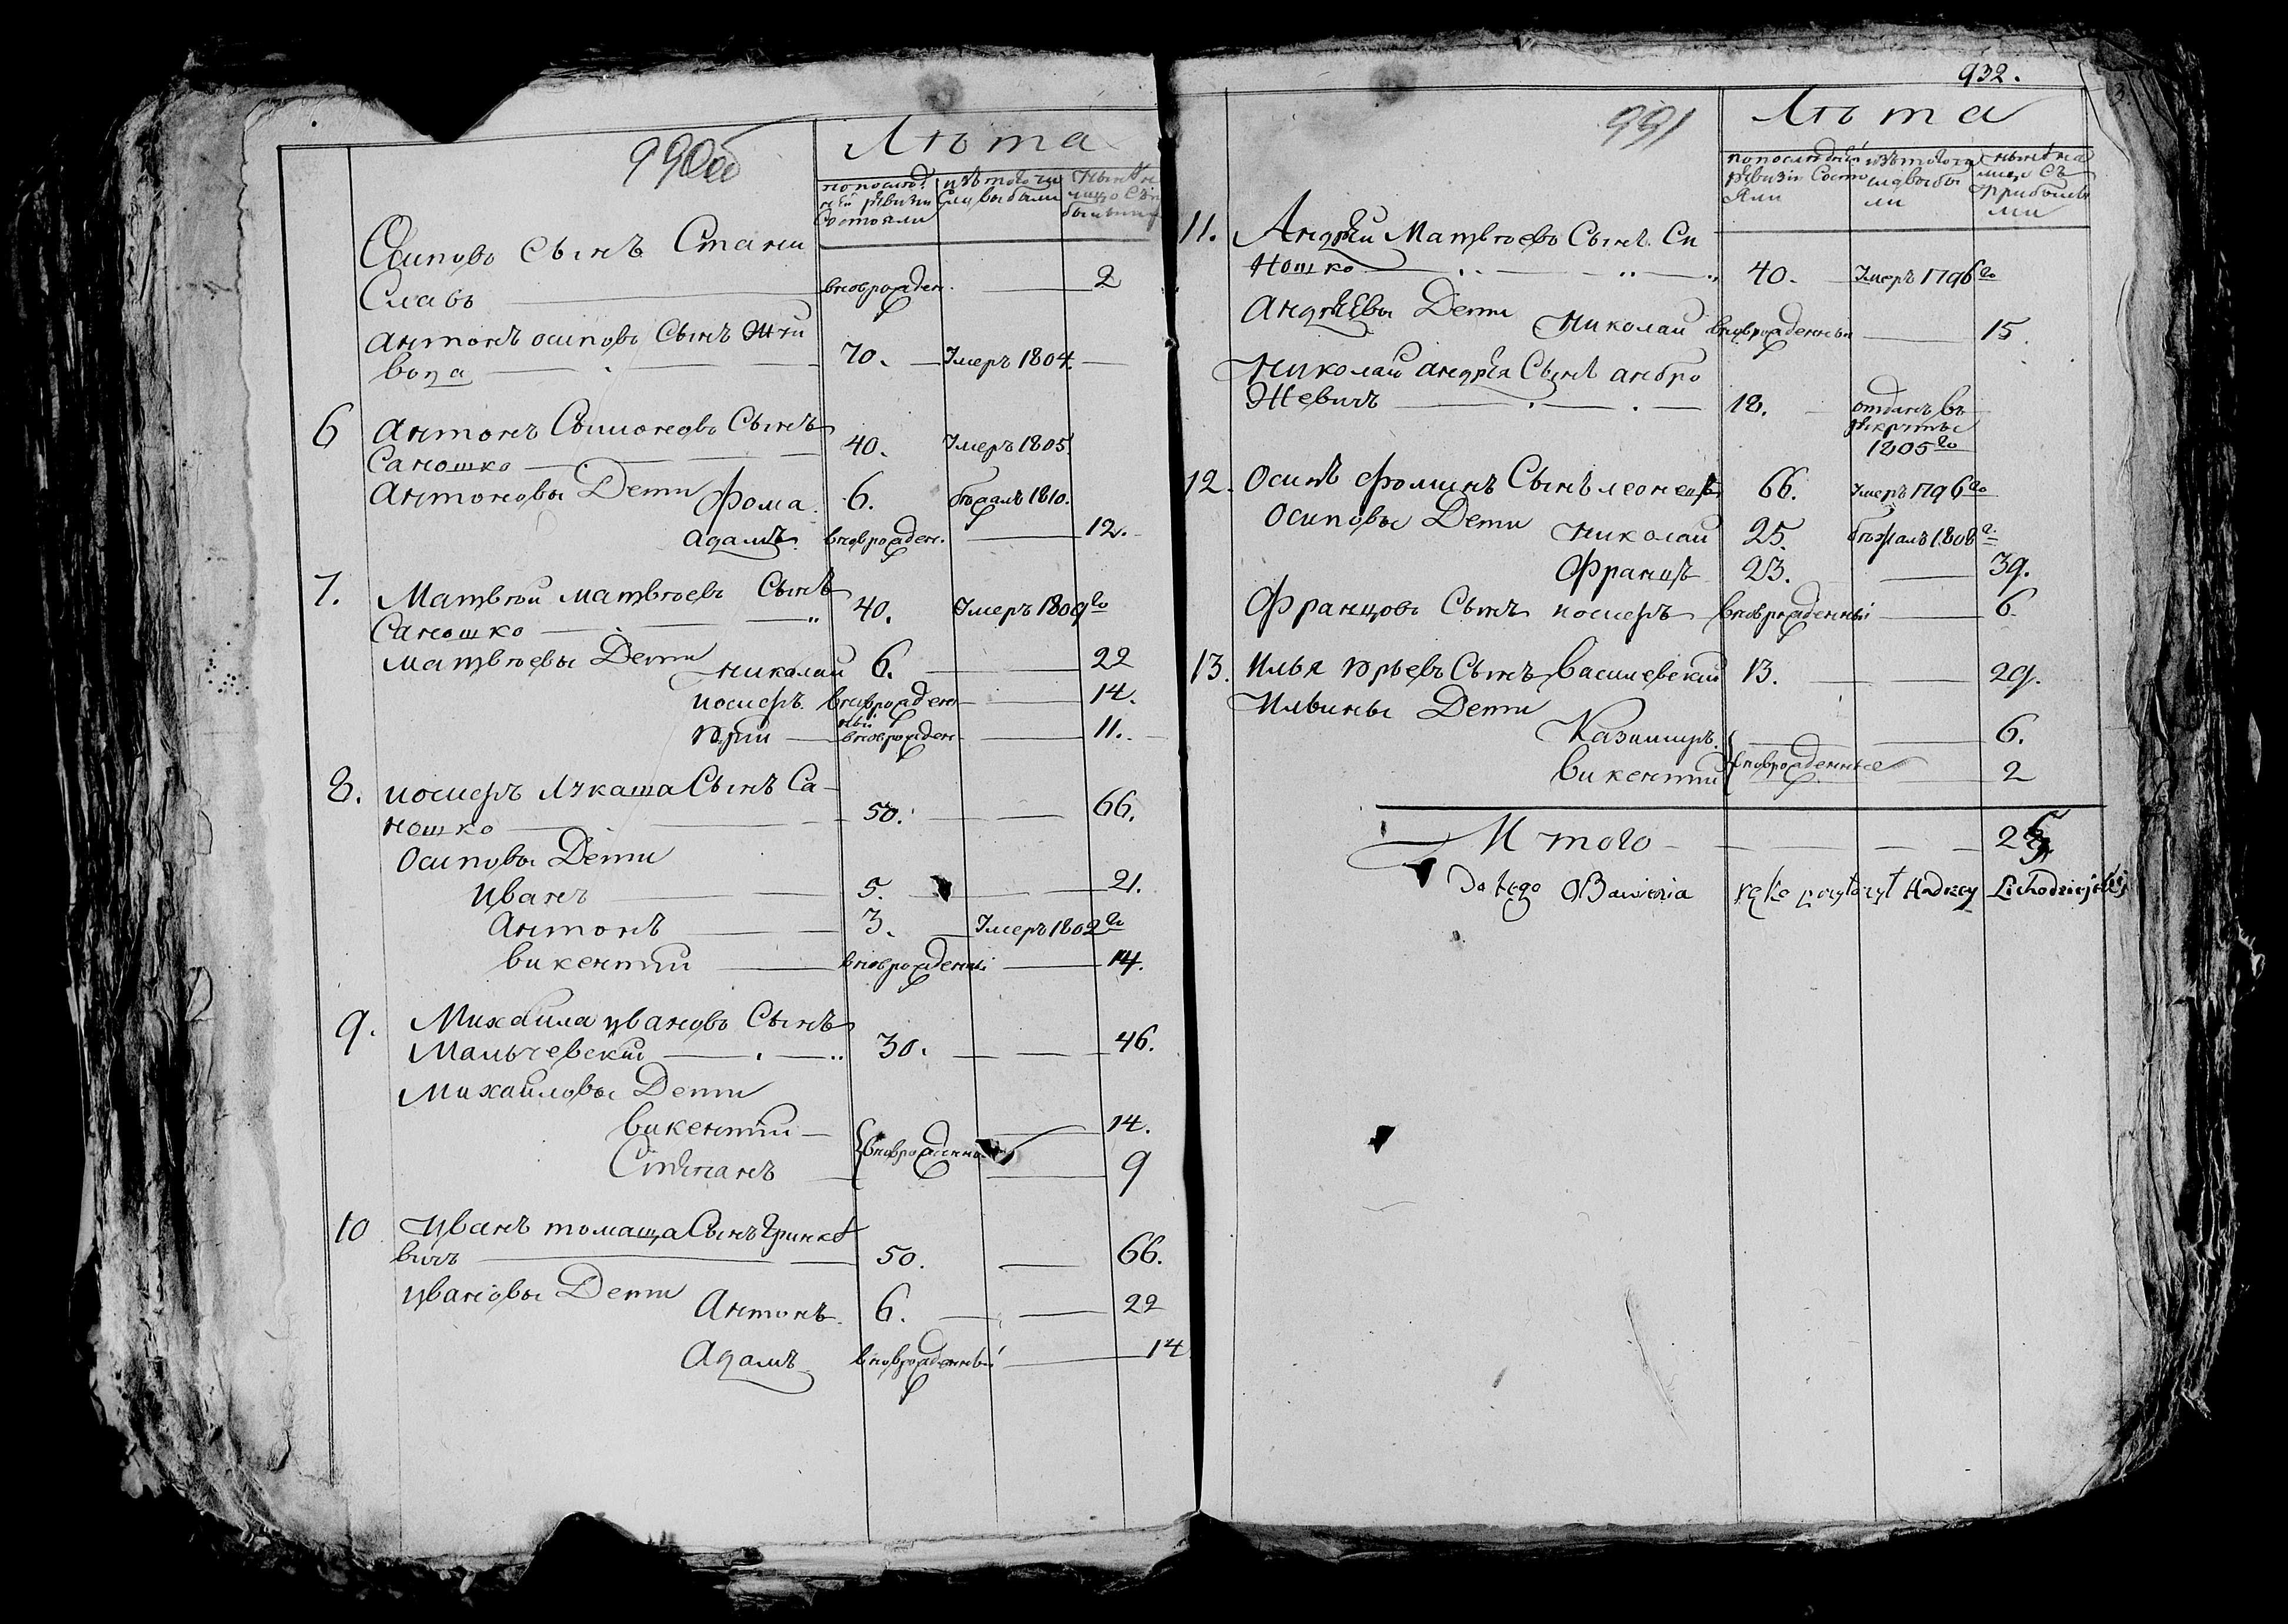 990об
Лѣта
по послѣд
ней ревизіи
состояли
изъ того чи
сла выбыли
Осиповъ Сынъ Стани
Славъ вновьрожден. 2
Антонъ осиповъ Сынъ Жи
вода 70. Умеръ 1804.
6 Антонъ Сымоновъ Сынъ
Саношко 40. Умеръ 1805
Антоновы Дети Фома. 6. бежалъ 1810.
Адамъ. вновьрожден. 12.
7. Матвѣй матвѣевъ Сынъ
Саношко 40. Умеръ 1809го
матвѣевы Дети николай 6. 22
иосифъ. вновьрожден 14.
ный
юрий вновьрожден 11.
8. иосифъ Лукаша Сынъ Са-
ношко 50. 66.
Осиповы Дети
Иванъ 5. 21.
Антонъ 3. Умеръ 1802го
викентий вновьрожденный 14.
9. Михайла ивановъ Сынъ
Мальчевский 30. 46.
Михайловы Дети
викентий 14.
вновьрожденны
Стѣпанъ 9
10 Иванъ томаша Сынъ Гринке
вичъ 50. 66.
ивановы Дети Антонъ. 6. 22
Адамъ вновьрожденный 14
932.
3.
991
Лѣта
по послѣдней
ревизіи Состо
яли
изъ того чи
сла выбы
ли
нынѣ на
лицо съ
прибылы
ми
11. Андрѣй Матвѣевъ Сынъ Си
ношко 40. Умеръ 1796го
Андрѣевы Дети Николай вновьрожденный 15.
Николай андрѣя Сынъ анбро
жевичъ 18. отданъ въ
рекруты
1805го
12. Осипъ Фоминъ Сынъ леонецъ 66. Умеръ 1796го
Осиповы Дети николай 25. бежалъ 1808го
Францъ 23. 39.
Францовъ Сынъ иосифъ вновьрожденный 6.
13. Илья юрьевъ Сынъ василевский 13. 29.
Ильины Дети
Казимиръ. 6.
вновьрожденные
викентий 2
Итого
Do tego rękę przyłożył Andrzey